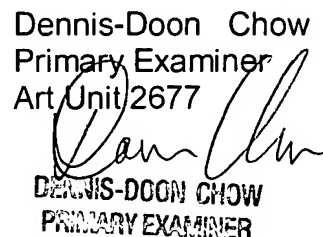 Dennis-Doon Chow
Primary Examiner
Art Unit 2677
DENNIS-DOON CHOW
PRIMARY EXAMINER